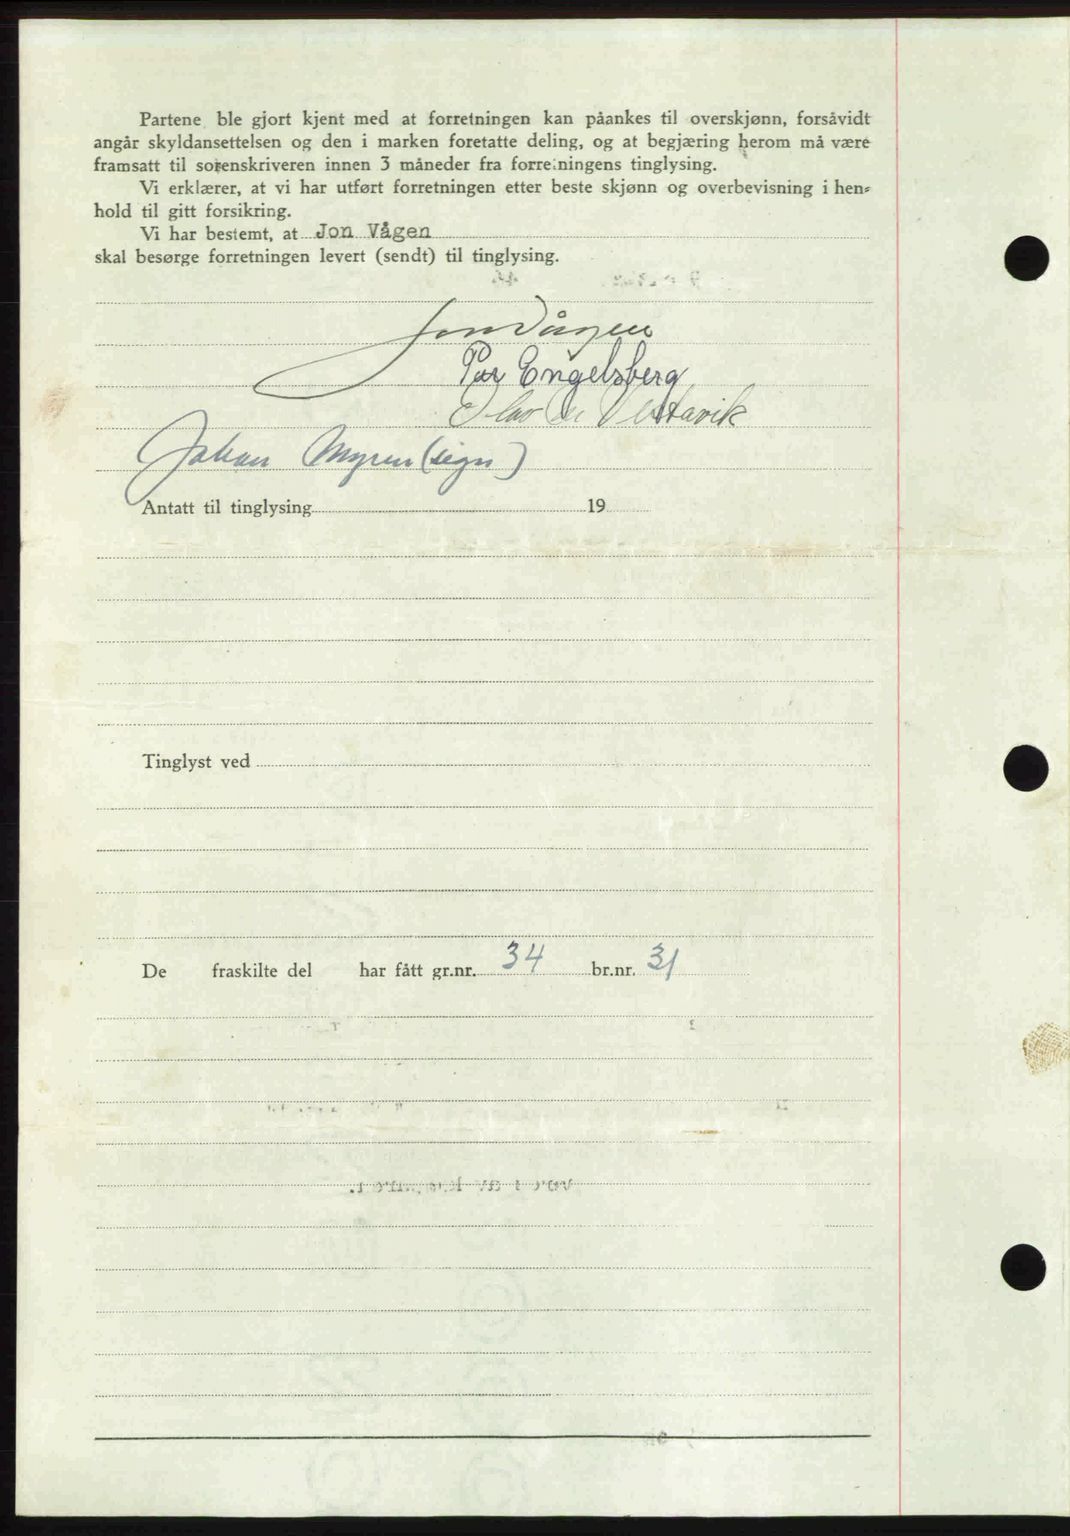 Partene ble gjort kjent med at forretningen kan påankes til overskjønn, forsåvidt
angår skyldansettelsen og den i marken foretatte deling, og at begjæring herom må være
framsatt til sorenskriveren innen 3 måneder fra forretningens tinglysing.
Vi erklærer, at vi har utført forretningen etter beste skjønn og overbevisning i hen-
hold til gitt forsikring.
Vi har bestemt, at Jon Vågen
skal besørge forretningen levert (sendt) til tinglysing.
Jon Vågen
Per Engelsberg
Olav Vestavik
Johan Myren (sign)
Antatt til tinglysing 19
Tinglyst ved
De fraskilte del har fått gr.nr. 34 br.nr. 31